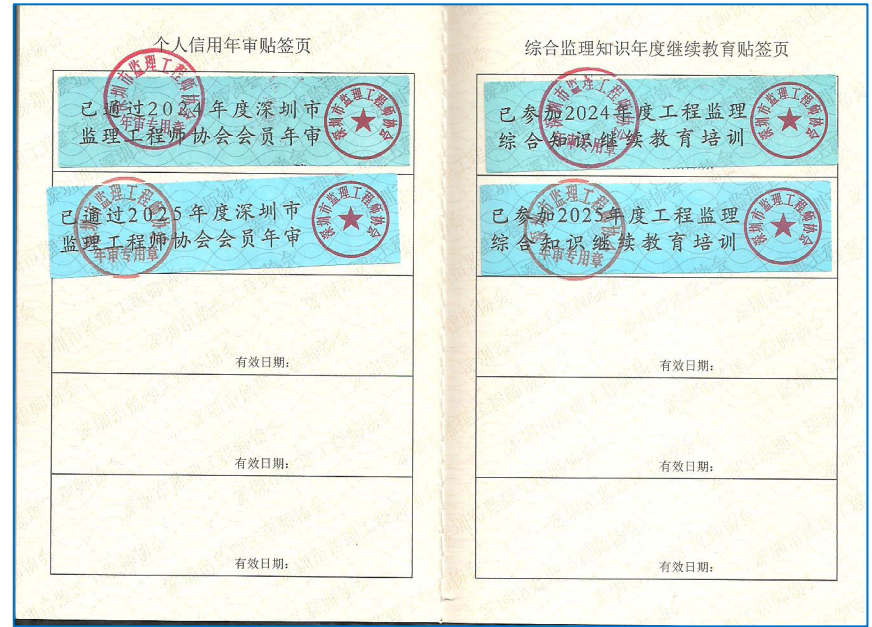 个人信用年审贴签页
已通过2024年度深圳市
监理工程师协会会员年审
深圳市监理工程师协会
深圳市监理工程师协会
年审专用章
已通过2025年度深圳市
监理工程师协会会员年审
深圳市监理工程师协会
深圳市监理工程师协会
年审专用章
有效日期：
有效日期：
有效日期：
综合监理知识年度继续教育贴签页
已参加2024年度工程监理
综合知识继续教育培训
深圳市监理工程师协会
深圳市监理工程师协会
年审专用章
已参加2025年度工程监理
综合知识继续教育培训
深圳市监理工程师协会
深圳市监理工程师协会
年审专用章
有效日期：
有效日期：
有效日期：